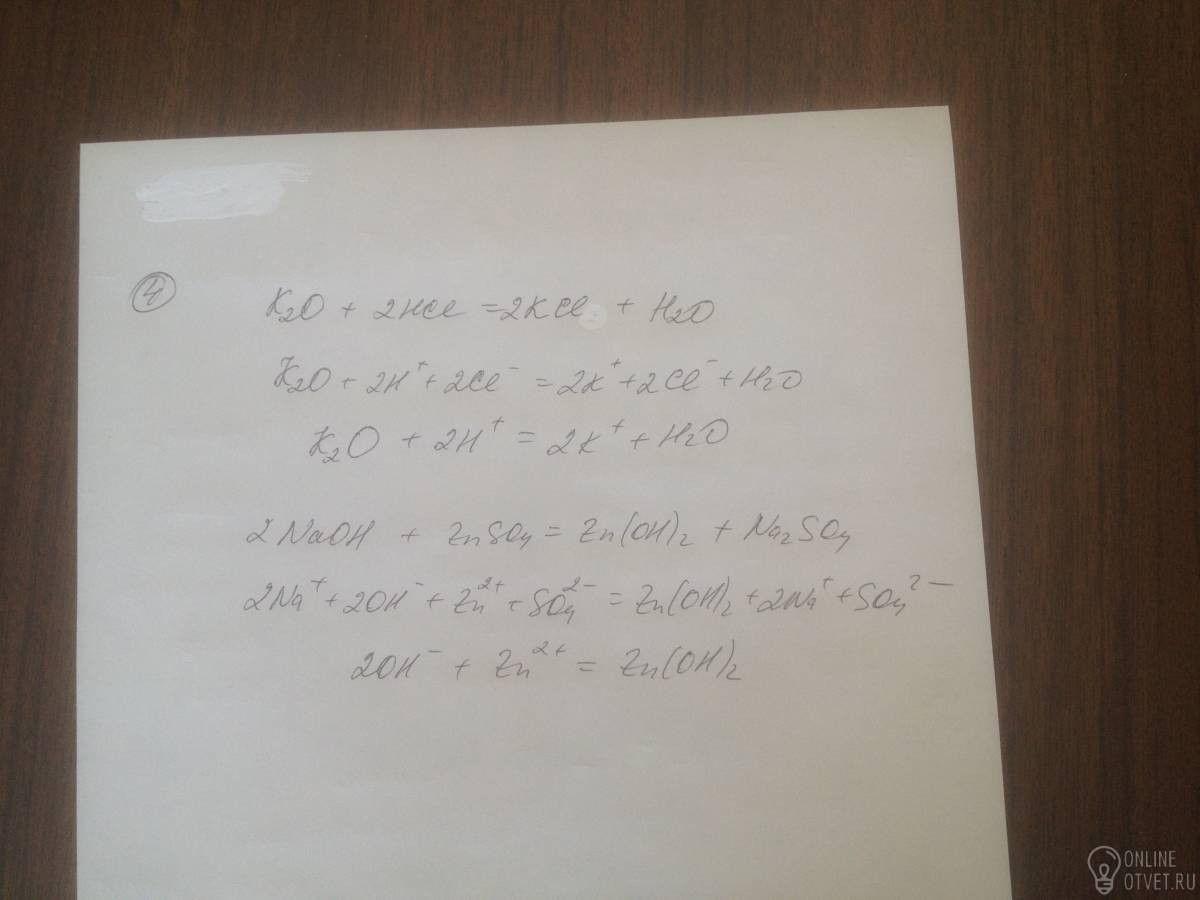 ④
K₂O + 2HCl = 2KCl + H₂O
K₂O + 2H⁺ + 2Cl⁻ = 2K⁺ + 2Cl⁻ + H₂O
K₂O + 2H⁺ = 2K⁺ + H₂O
2NaOH + ZnSO₄ = Zn(OH)₂ + Na₂SO₄
2Na⁺ + 2OH⁻ + Zn²⁺ + SO₄²⁻ = Zn(OH)₂ + 2Na⁺ + SO₄²⁻
2OH⁻ + Zn²⁺ = Zn(OH)₂
ONLINE
OTVET.RU